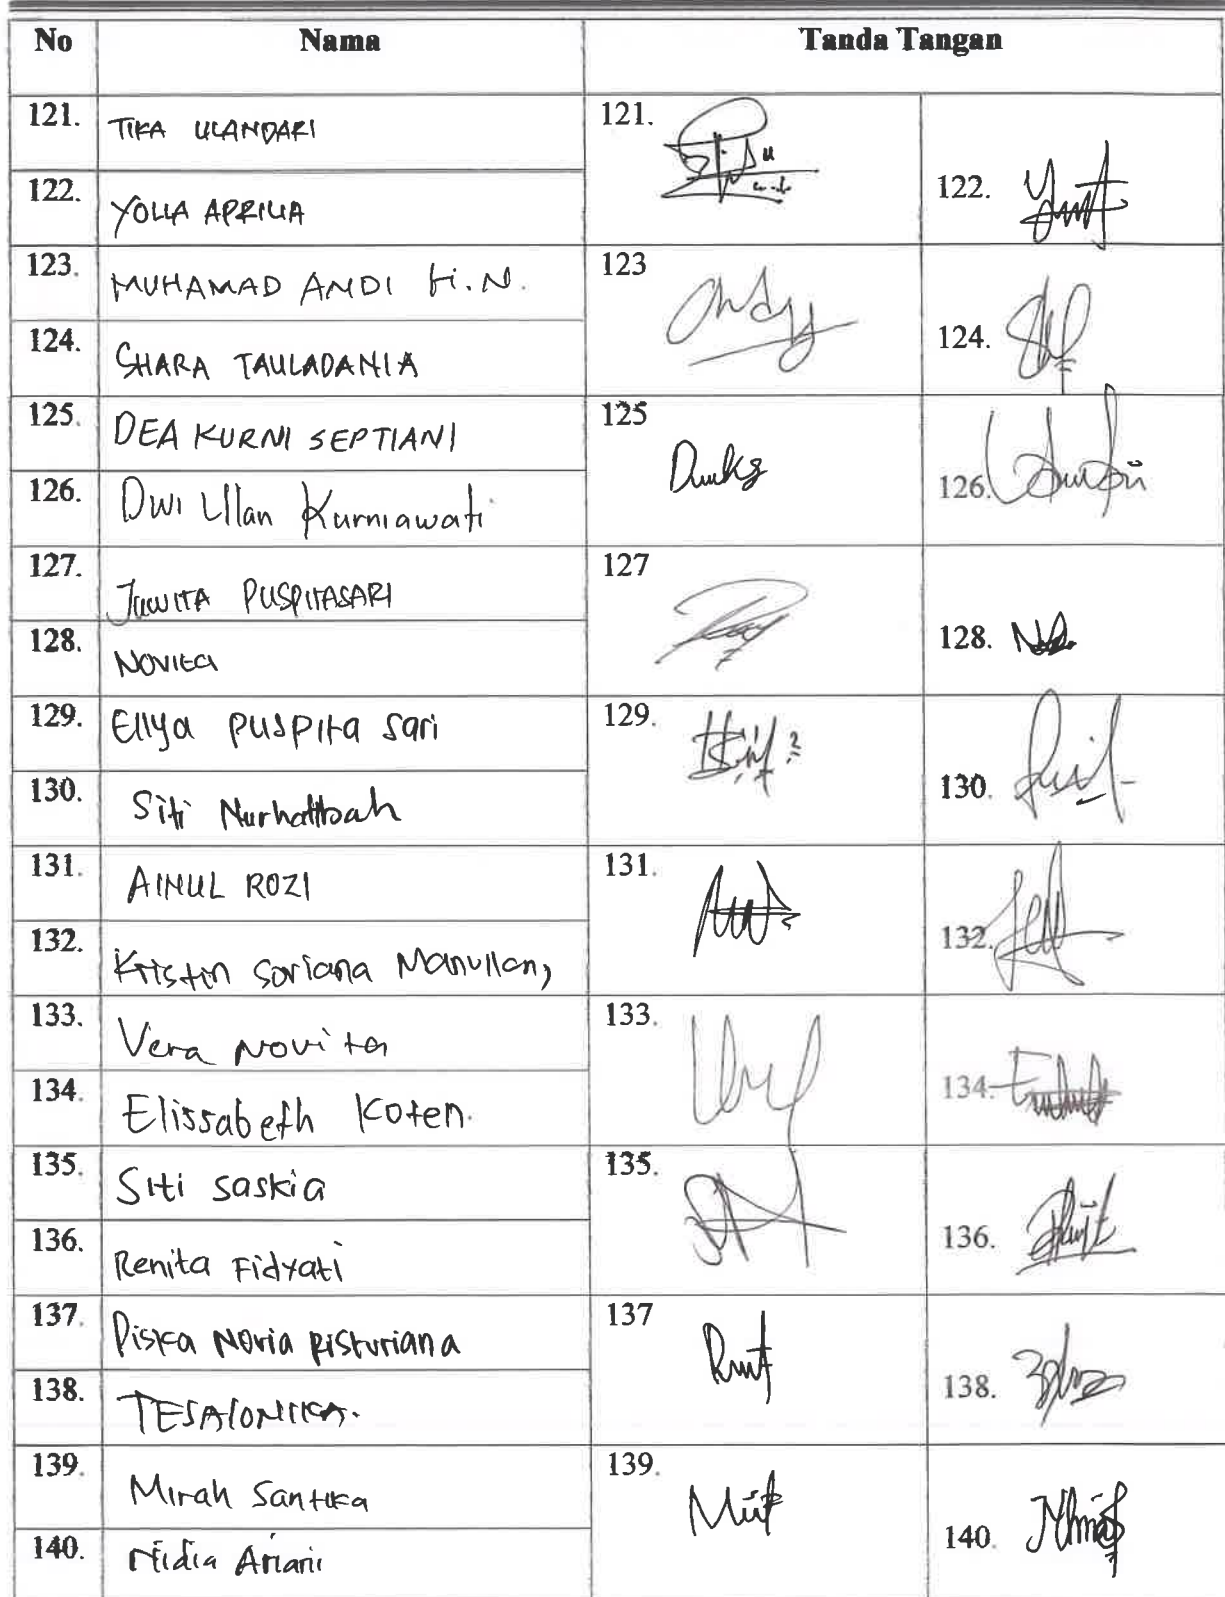 No Nama Tanda Tangan
121. TIKA ULANDARI 121.
122. YOLLA APRILIA 122.
123. MUHAMAD ANDI H.N. 123
124. SHARA TAULADANIA 124.
125. DEA KURNI SEPTIANI 125
126. Dwi Ulan Kurniawati 126.
127. JUWITA PUSPITASARI 127
128. NOVITA 128.
129. Ellya Puspita Sari 129.
130. Siti 130.
131. AINUL ROZI 131.
132. Kristin Soriana Manullang 132.
133. Vera Novita 133.
134. Elissabeth Koten. 134.
135. Siti Saskia 135.
136. Renita Fidyati 136.
137. Piska Novia Risturiana 137
138. TESALONIKA. 138.
139. Mirah Santika 139.
140. Nidia Ariani 140.